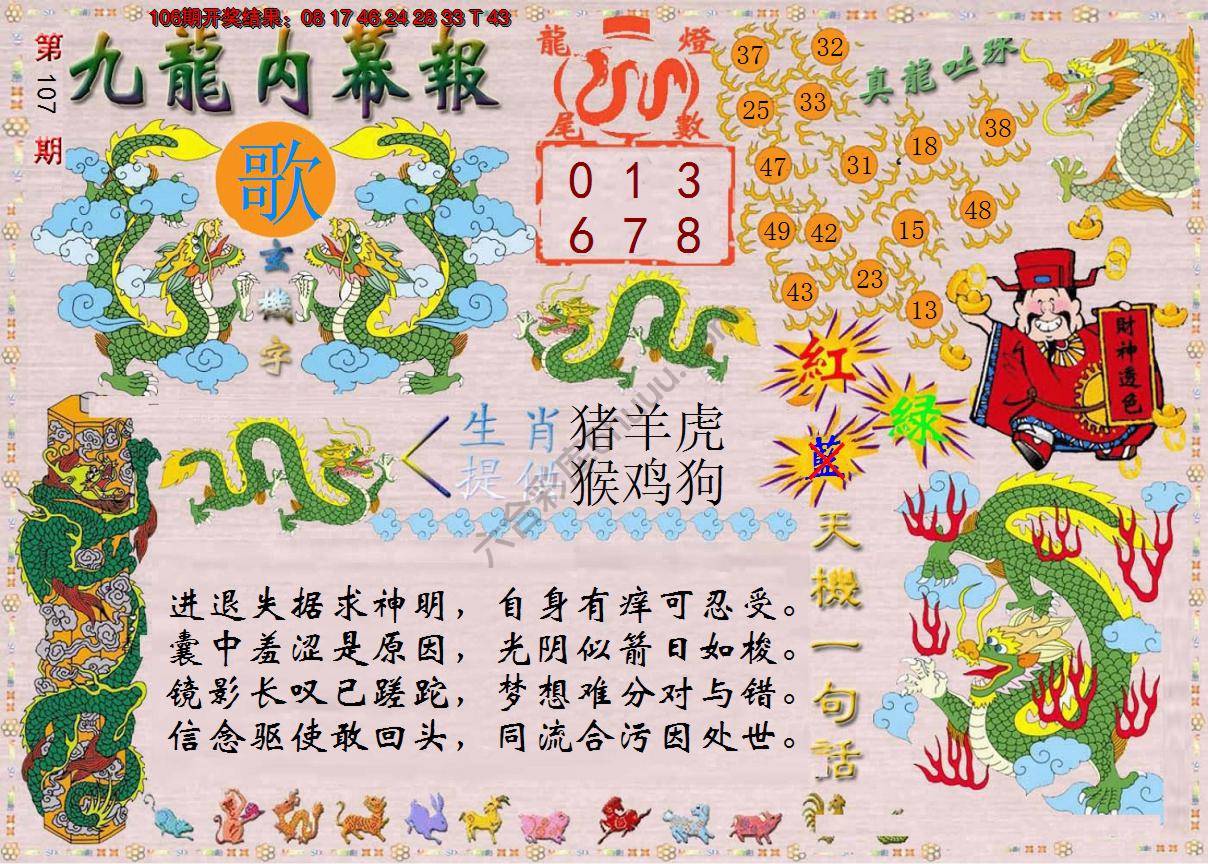 106期开奖结果：08 17 46 24 28 33 T 43
第107期
九龍内幕報
歌
玄機字
龍燈尾數
0 1 3
6 7 8
真龍吐珠
37 32
25 33
47 31 18 38
49 42 15 48
43 23 13
財神透色
紅
綠
藍
生肖提供
猪羊虎
猴鸡狗
天機一句話
进退失据求神明，自身有痒可忍受。
囊中羞涩是原因，光阴似箭日如梭。
镜影长叹已蹉跎，梦想难分对与错。
信念驱使敢回头，同流合污因处世。